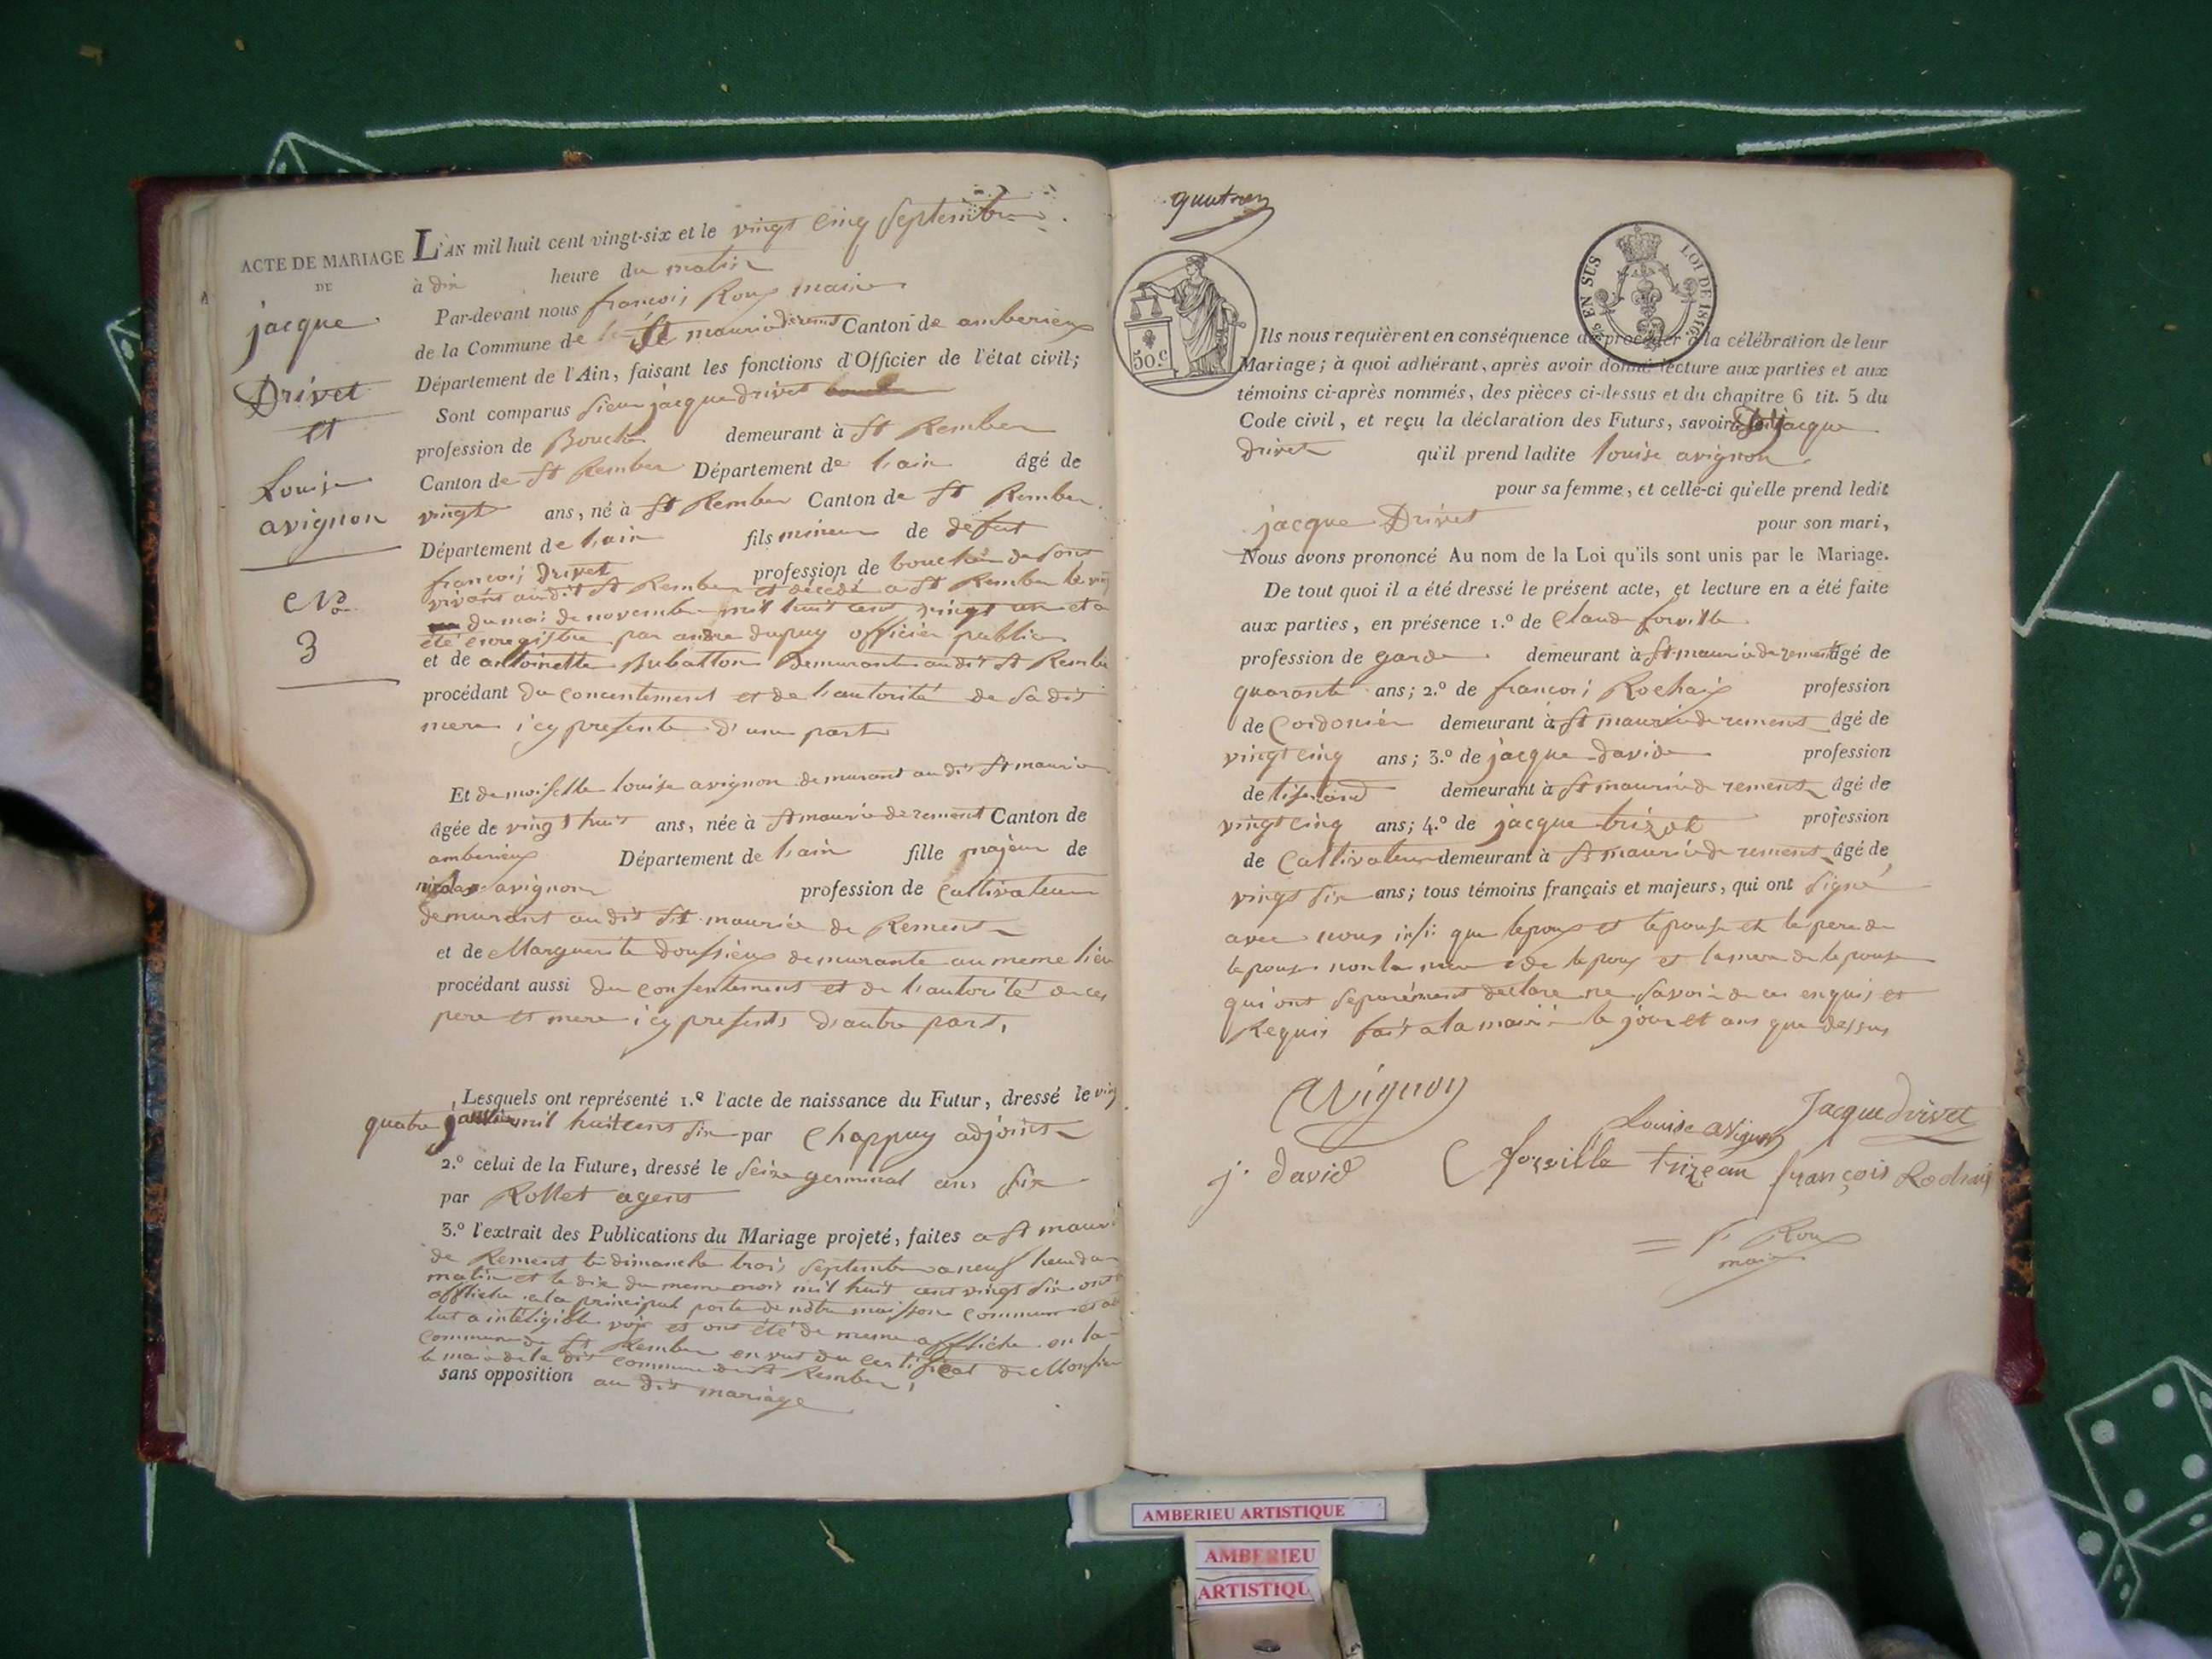 ACTE DE MARIAGE
DE
jacque
Drivet
et
Louise
avignon
No
3
L'AN mil huit cent vingt-six et le vingt cinq Septembre
à dix heure du matin
Par-devant nous françois Roux maire
de la Commune de St maurice de remens Canton de amberieux
Département de l'Ain, faisant les fonctions d'Officier de l'état civil;
Sont comparus Sieur jacque drivet
profession de Boucher demeurant à St Rember
Canton de St Rember Département de l'ain âgé de
vingt ans, né à St Rember Canton de St Rember
Département de l'ain fils mineur de defut
françois drivet profession de boucher de sont
vivant au dit St Rember et décédé a St Rember le vingt
du moi de novembre mil huit cent vingt un et a
été enregistre par andre dupuy officier public
et de antoinette Dubatton Demurante au dit St Rember
procédant du concentement et de l'autorité de sa dit
mere i'cy presente d'une part
Et demoiselle louise avignon demurant au dit St maurice
âgée de vingt huit ans, née à St maurice de remens Canton de
amberieux Département de l'ain fille majeur de
nicolas avignon profession de Cultivateur
demurant au dit St maurice de Remens
et de Marguerite doussieux demurante au meme lieu
procédant aussi du consentement et de l'autorité de ces
pere et mere i'cy presents d'autre part,
Lesquels ont représenté 1.º l'acte de naissance du Futur, dressé le vingt
quatre janvier mil huit cent six par Chappuy adjoint
2.º celui de la Future, dressé le Seize germinal ans six
par Rollet agent
3.º l'extrait des Publications du Mariage projeté, faites a St maurice
de Remens le dimanche trois Septembre a neuf heur du
matin et le dix du meme mois mil huit cent vingt six ont
affiche a la principal porte de notre maison commune et ont
lut a inteligible voix et ont été de meme affiche en la
commune de St Rember en vut du certificat de Monsieur
le maire de la dit commune de St Rember,
sans opposition au dit mariage
quatre
50 C
25 EN SUS LOI DE 1816.
Ils nous requièrent en conséquence de procéder à la célébration de leur
Mariage; à quoi adhérant, après avoir donné lecture aux parties et aux
témoins ci-après nommés, des pièces ci-dessus et du chapitre 6 tit. 5 du
Code civil, et reçu la déclaration des Futurs, savoir: jacque
drivet qu'il prend ladite louise avignon
pour sa femme, et celle-ci qu'elle prend ledit
jacque Drivet pour son mari,
Nous avons prononcé Au nom de la Loi qu'ils sont unis par le Mariage.
De tout quoi il a été dressé le présent acte, et lecture en a été faite
aux parties, en présence 1.º de Claude forville
profession de garde demeurant à St maurice de remens âgé de
quarante ans; 2.º de françois Rochaix profession
de Cordonier demeurant à St maurice de remens âgé de
vingt cinq ans; 3.º de jacque david profession
de tiserand demeurant à St maurice de remens âgé de
vingt cinq ans; 4.º de jacque trizot profession
de Cultivateur demeurant à St maurice de remens âgé de
vingt six ans; tous témoins français et majeurs, qui ont signé
avec nous insi que lepoux et lepouse et le pere de
lepouse non la mere de lepoux et la mere de lepouse
qui ont separément declare ne savoir de ce enquis et
Requis fait a la mairie le jour et ans que dessus
Avignon
Louise avignon
Jacque drivet
j. david
C forville
trizeau
françois Rochaix
f Roux
maire
AMBERIEU ARTISTIQUE
AMBERIEU
ARTISTIQU